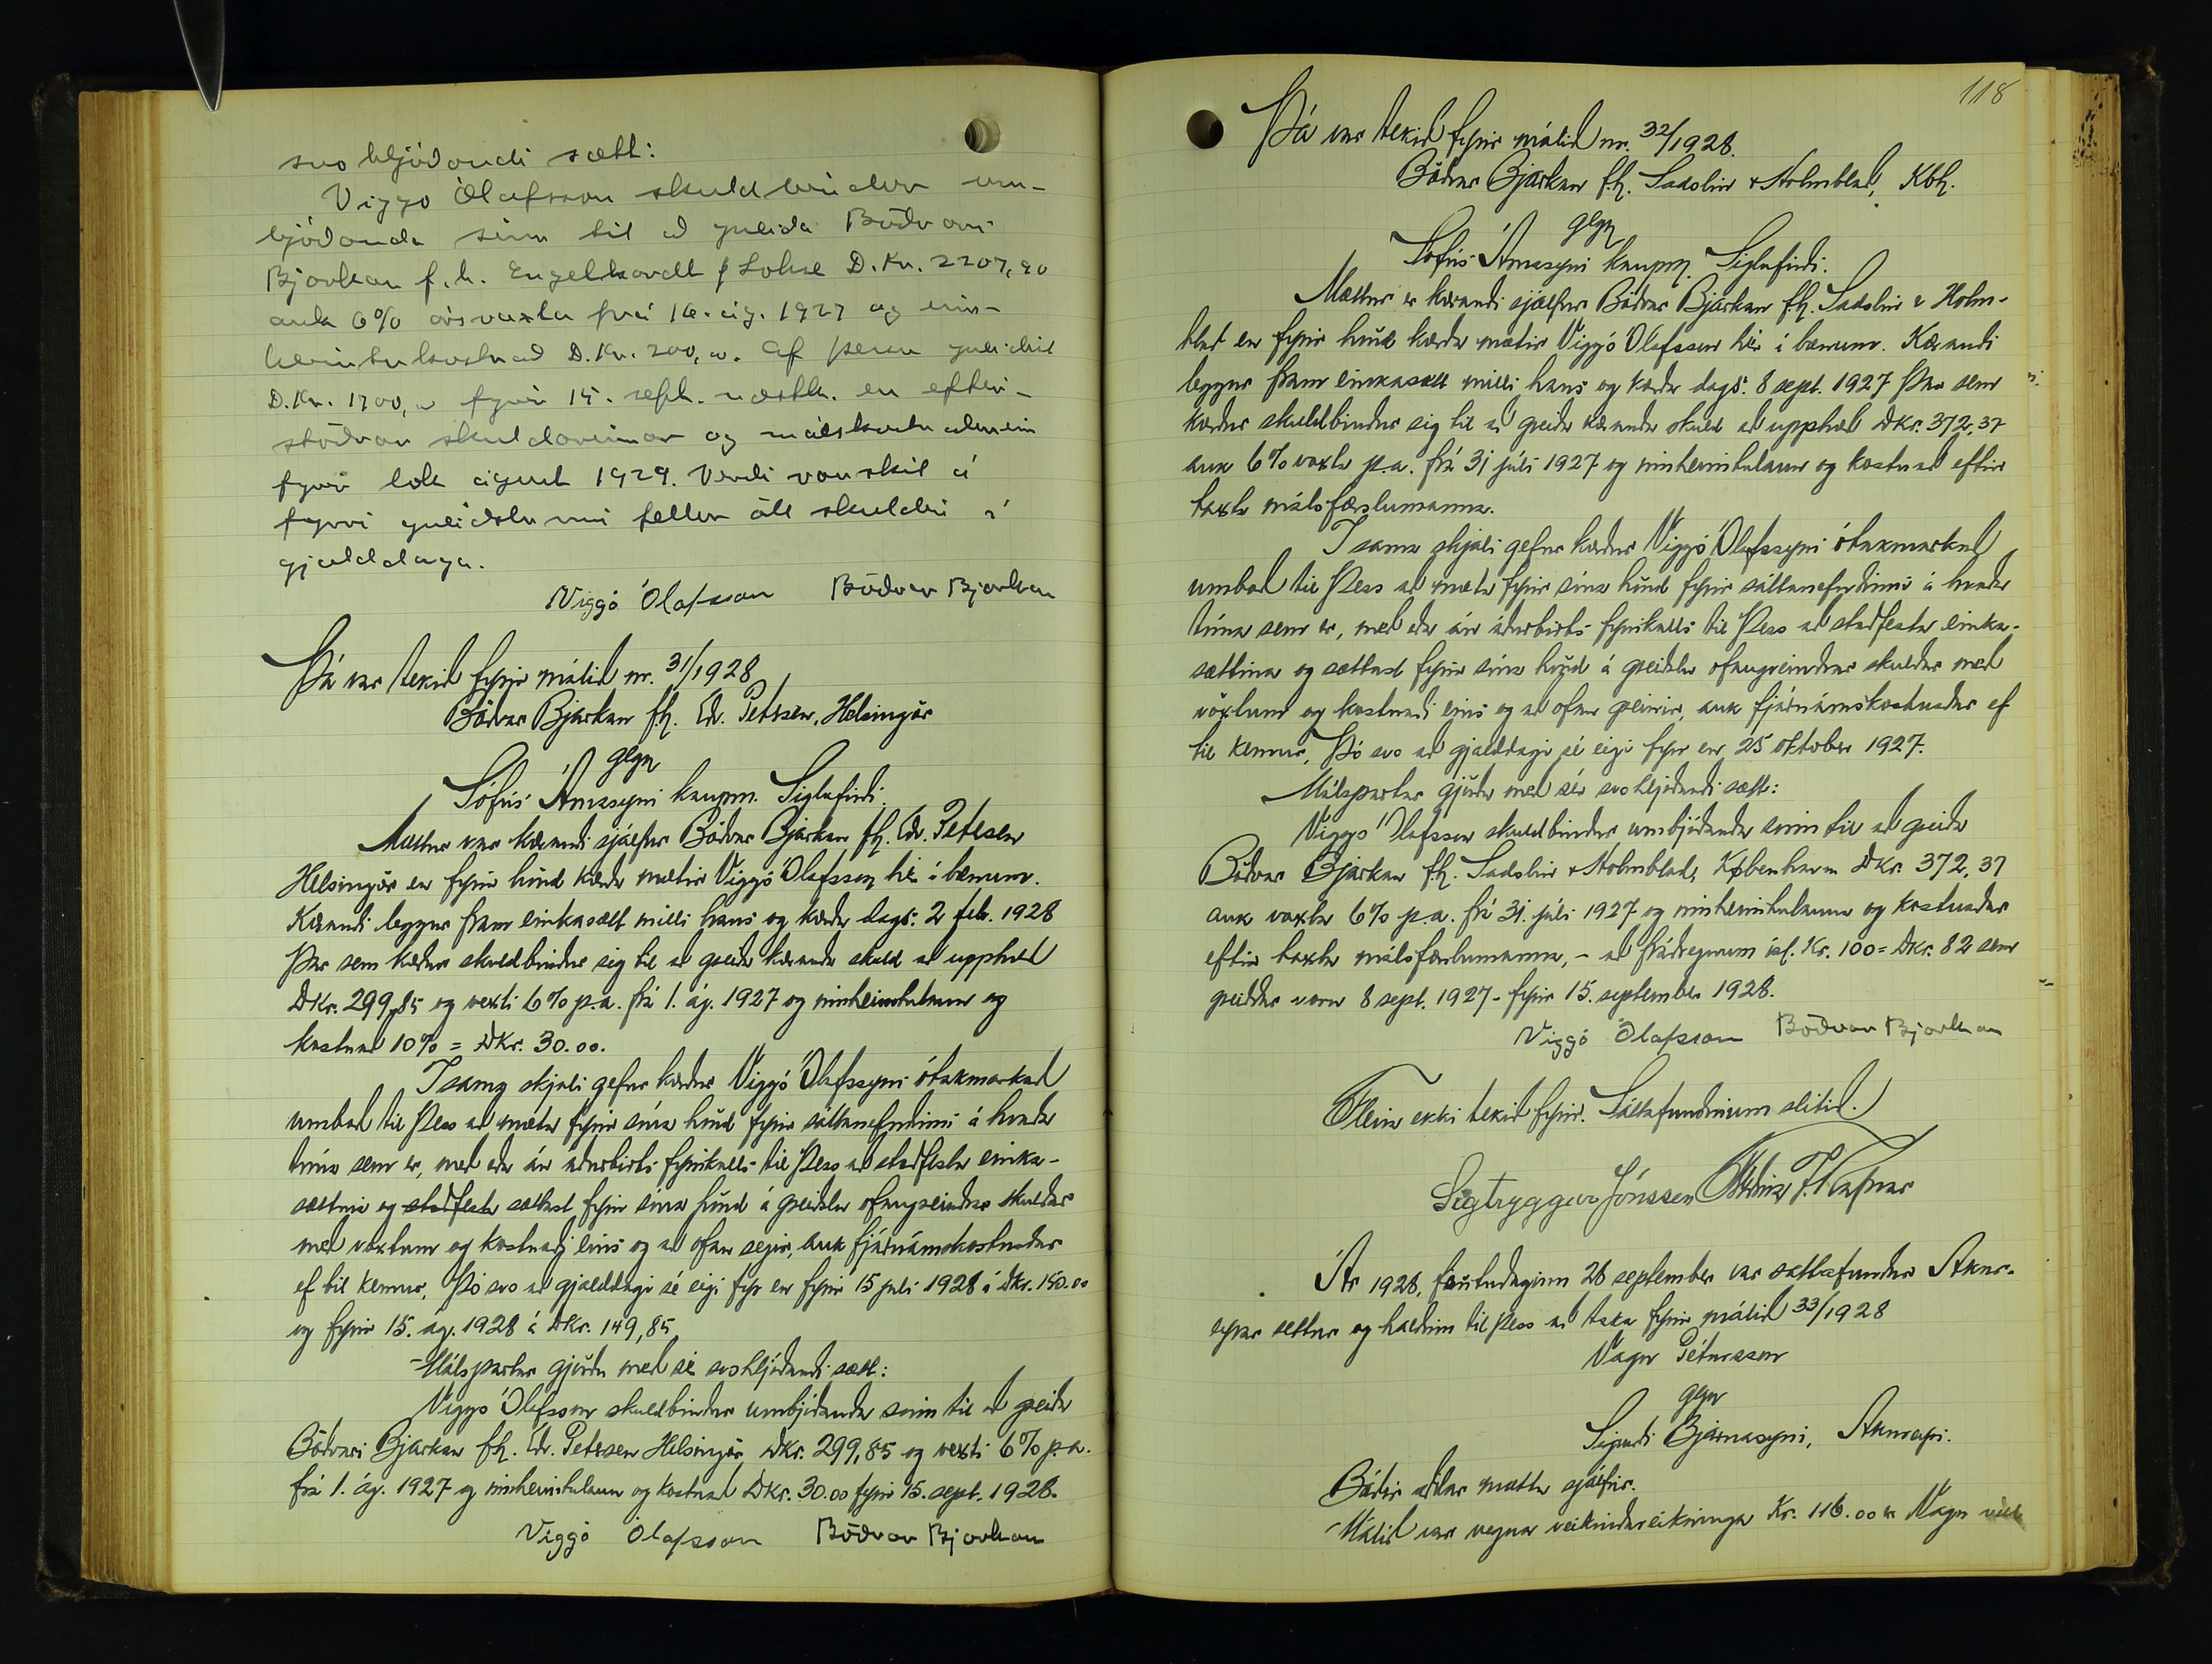 svo hljóðandi sætt:
Viggo Ólafsson skuldbindur um-
bjóðanda sinn til að greiða Böðvari
Bjarkan f.h. Engelhardt & Lohse D.Kr. 2207,90
auk 6% ársvaxta frá 16. ág. 1927 og inn-
heimtukostnað D.Kr. 200,00. Af þessu greiðist
D.Kr. 1700,00 fyrir 15. sept. næstk. en eftir-
stöðvar skuldarinnar og málskostnaðurinn
fyrir lok ágúst 1929. Verði vanskil á
fyrri greiðslunni fellur öll skuldin í
gjalddaga.
Viggó Ólafsson Böðvar Bjarkan
Þá var tekið fyrir málið nr. 31/1928
Böðvar Bjarkan fh. Edv. Petersen, Helsingör
gegn
Sófusi Árnasyni kaupm. Siglufirði.
Mættur var kærandi sjálfur Böðvar Bjarkan fh. Edv. Petersen
Helsingör en fyrir hönd kærða mætir Viggó Ólafsson hér í bænum.
Kærandi leggur fram einkasátt milli hans og kærða dags. 2 feb. 1928
þar sem kærður skuldbindur sig til að greiða kæranda skuld að upphæð
DKr. 299,85 og vexti 6% p.a. frá 1. ág. 1927 og innheimtulaun og
kostnað 10% = DKr. 30.00.
Í sama skjali gefur kærður Viggó Ólafssyni ótakmarkað
umboð til þess að mæta fyrir sína hönd fyrir sáttanefndinni á hvaða
tíma sem er, með eða án áðurbirts fyrirkalls til þess að staðfesta einka-
sættina og staðfesta sættast fyrir sína hönd á greiðslu ofangreindrar skuldar
með vöxtum og kostnaði eins og að ofan segir, auk fjárnámskostnaðar
ef til kemur, þó svo að gjalddagi sé eigi fyr en fyrir 15 júli 1928 á DKr. 150.00
og fyrir 15. ág. 1928 á DKr. 149,85
Málspartar gjörðu með sér svohljóðandi sætt:
Viggó Ólafsson skuldbindur umbjóðanda sinn til að greiða
Böðvari Bjarkan fh. Edv. Petersen Helsingör, DKr. 299,85 og vexti 6% p.a.
frá 1. ág. 1927 og innheimtulaun og kostnað DKr. 30.00 fyrir 15. sept. 1928.
Viggó Ólafsson Böðvar Bjarkan
118
Þá var tekið fyrir málið nr. 32/1928.
Böðvar Bjarkan fh. Sadolin & Holmblad, Kbh.
gegn
Sófusi Árnasyni kaupm. Siglufirði.
Mættur er kærandi sjálfur Böðvar Bjarkan fh. Sadolin & Holm-
blad en fyrir hönd kærða mætir Viggó Ólafsson hér í bænum. Kærandi
leggur fram einkasátt milli hans og kærða dags. 8 sept. 1927 þar sem
kærður skuldbindur sig til að greiða kæranda skuld að upphæð DKr. 372,37
auk 6% vaxta p.a. frá 31 júli 1927 og innheimtulaun og kostnað eftir
taxta málsfærslumanna.
Í sama skjali gefur kærður Viggó Ólafssyni ótakmarkað
umboð til þess að mæta fyrir sína hönd fyrir sáttanefndinni á hvaða
tíma sem er, með eða án áðurbirts fyrirkalls til þess að staðfesta einka-
sættina og sættast fyrir sína hönd á greiðslu ofangreindrar skuldar með
vöxtum og kostnaði eins og að ofan greinir, auk fjárnámskostnaðar ef
til kemur, þó svo að gjalddagi sé eigi fyr en 25 október 1927.
Málspartar gjörðu með sér svohljóðandi sætt:
Viggó Ólafsson skuldbindur umbjóðanda sinn til að greiða
Böðvar Bjarkan fh. Sadolin & Holmblad, København DKr. 372,37
auk vaxta 6% p.a. frá 31. júli 1927 og innheimtulauna og kostnaðar
eftir taxta málsfærslumanna, - að frádregnum ísl. Kr. 100 = DKr. 82 sem
greiddar voru 8 sept. 1927 - fyrir 15. september 1928.
Viggó Ólafsson Böðvar Bjarkan
Fleira ekki tekið fyrir. Sáttafundinum slitið.
Sigtryggur Jónsson Friðrik J. Rafnar
Ár 1928, föstudaginn 28 september var sáttafundur Akur-
eyrar settur og haldinn til þess að taka fyrir málið 33/1928
Vagn Pétursson
gegn
Sigurði Bjarnasyni, Akureyri.
Báðir aðilar mættu sjálfir.
Málið var vegna veikindareikninga Kr. 116.00 er Vagn